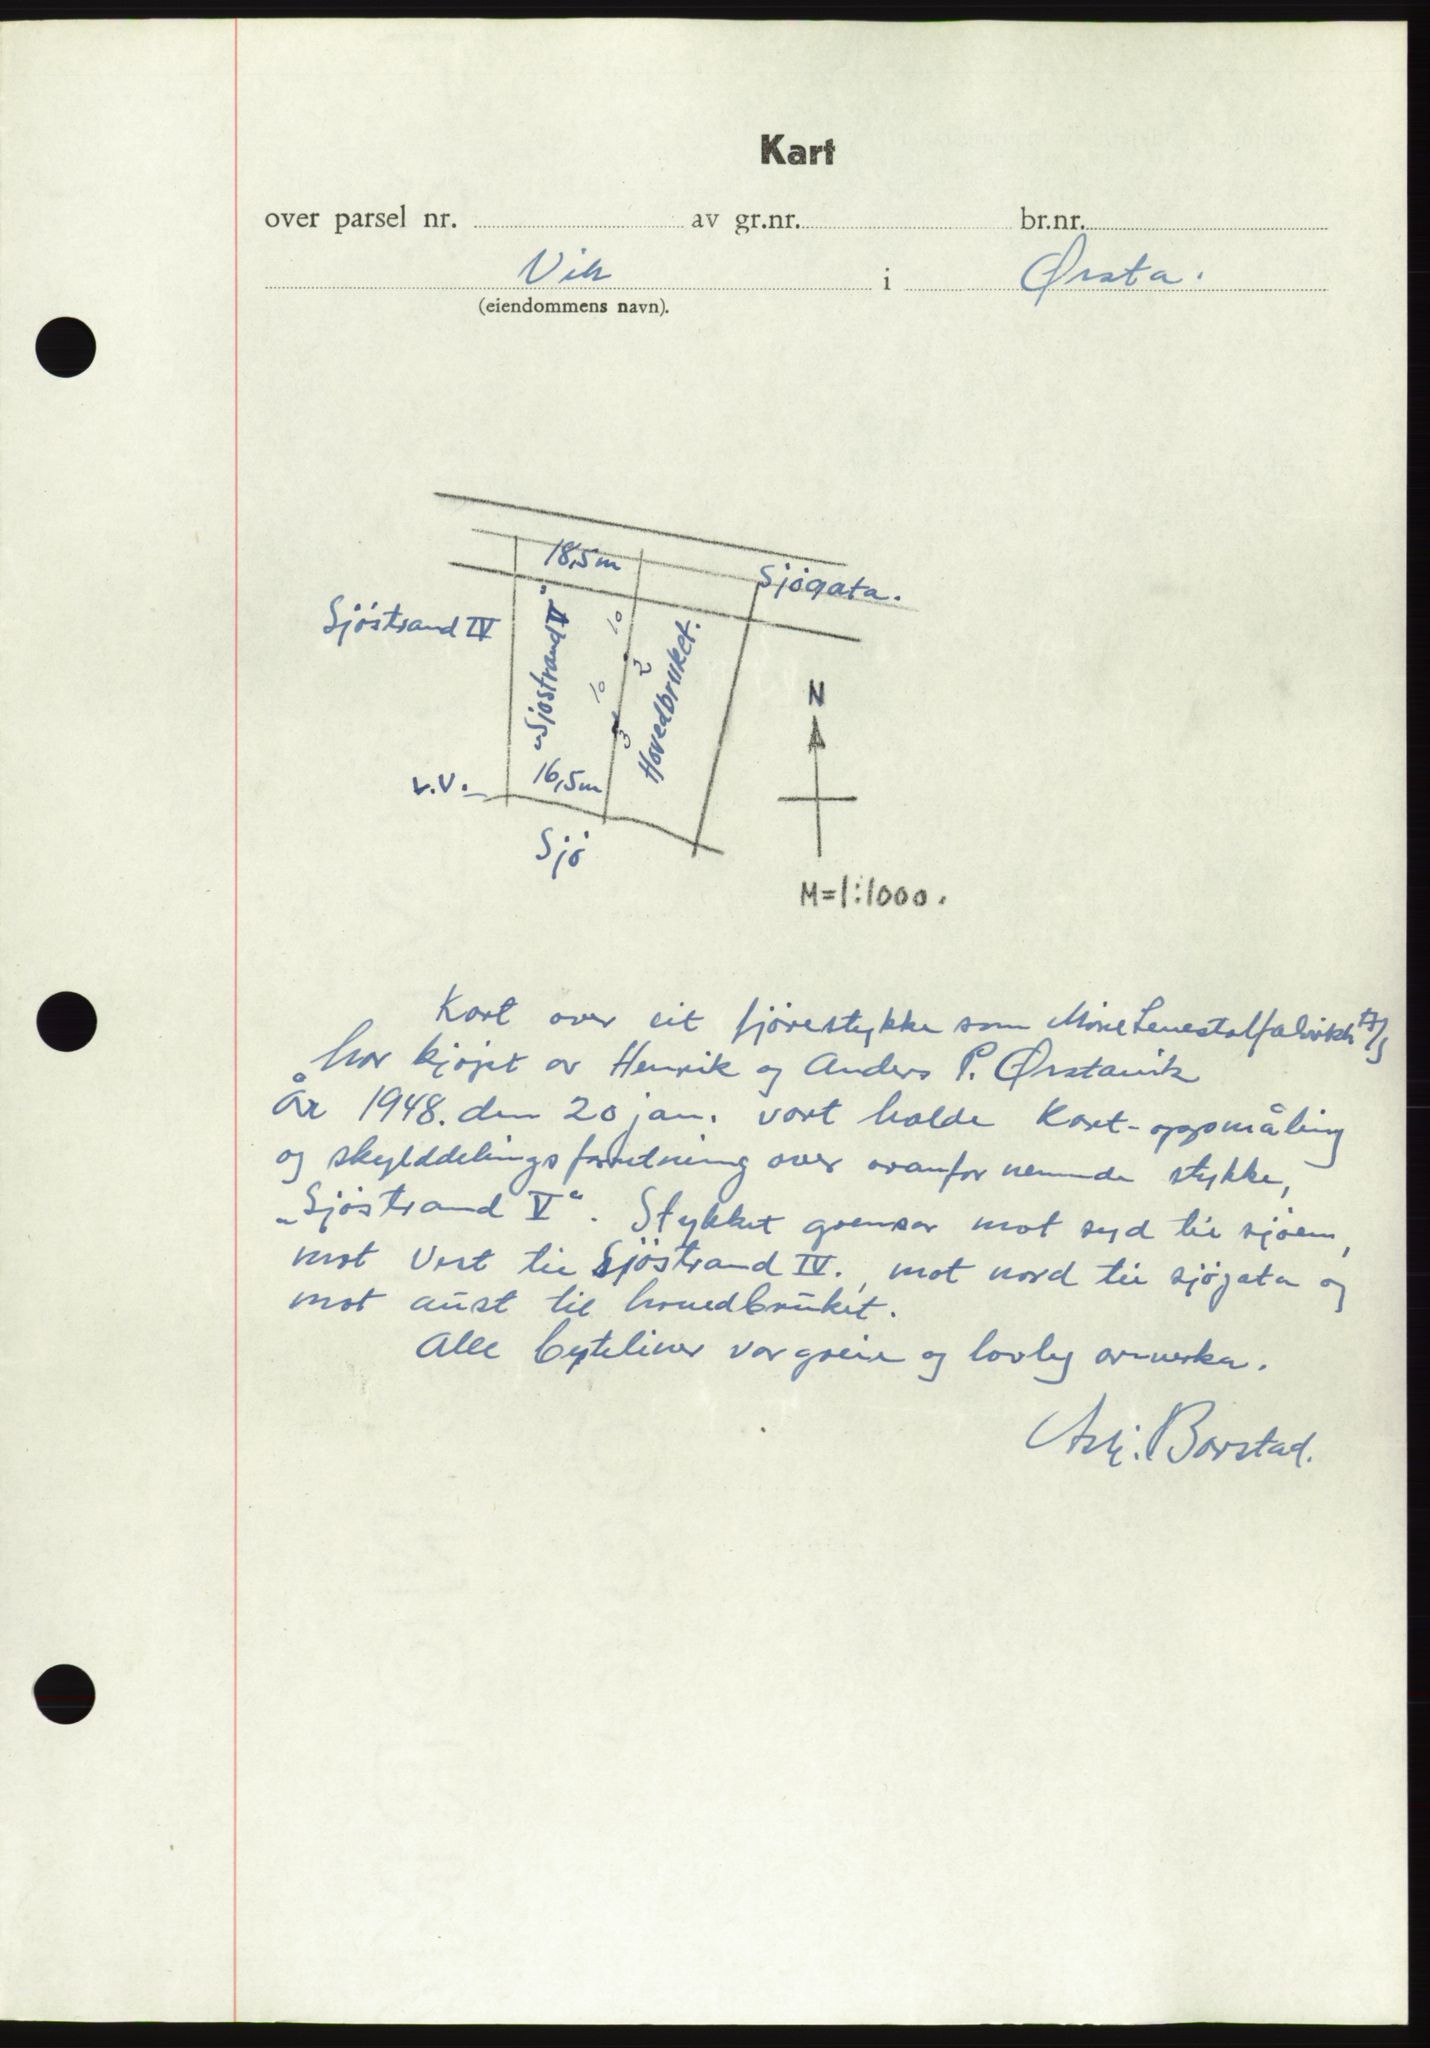 Kart
over parsel nr. av gr.nr. br.nr.
Vik i Ørsta.
(eiendommens navn).
18,5m
Sjögata.
Sjöstrand IV
„Sjöstrand V“
10
2
10
3
Hovedbruket.
N
v.v.
16,5m
Sjö
M=1:1000.
Kart over eit fjörestykke som Möre Lenestolfabrikk A/S
har kjöpt av Henrik og Anders P. Ørstavik
År 1948. den 20 jan. vart halde Kart-oppmåling
og skylddelingsforretning over ovanfor nemnde stykke,
„Sjöstrand V“. Stykket grensar mot syd til sjöen,
mot Vest til Sjöstrand IV., mot nord til sjögata og
mot aust til hovedbruket.
Alle byteliner var greie og lovleg
Borstad.